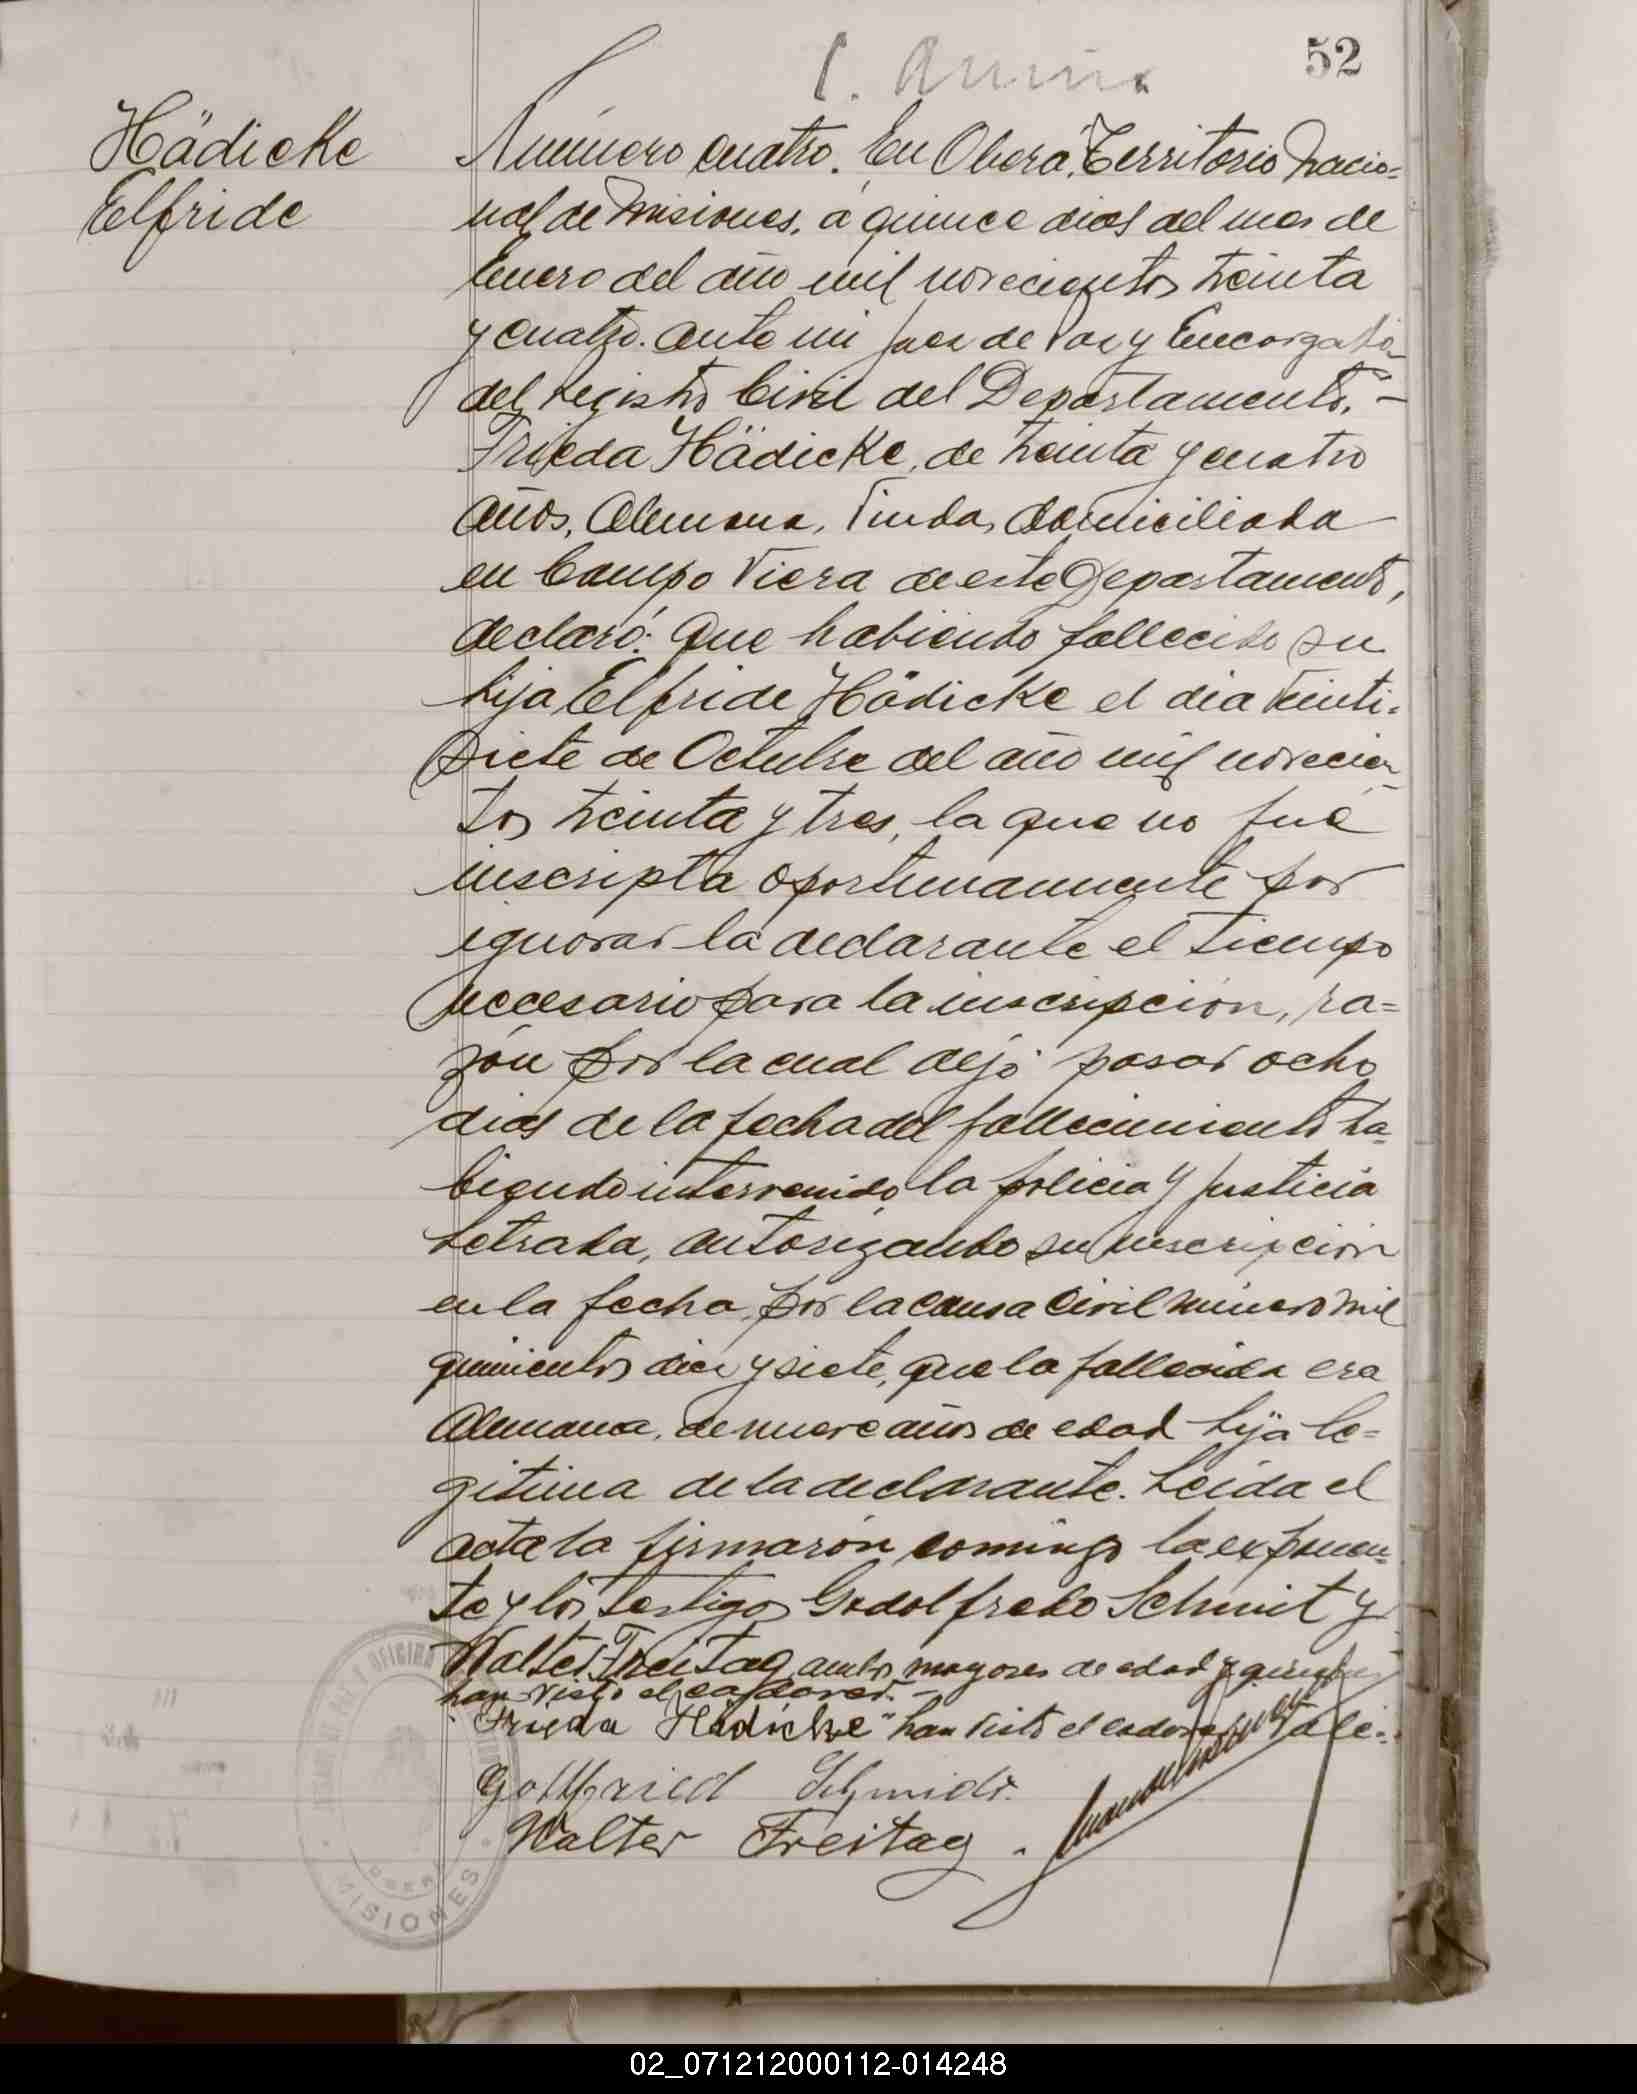 52
Hädicke
Elfride
Número cuatro. En Oberá, Territorio Nacio=
nal de Misiones, á quince dias del mes de
Enero del año mil novecientos treinta
y cuatro. ante mi Juez de Paz y Encargado
del registro Civil del Departamento. –
Frieda Hädicke, de treinta y cuatro
años, Alemana, Viuda, domiciliada
en Campo Viera de este Departamento,
declaró: Que habiendo fallecido su
hija Elfride Hädicke el dia veinti-
siete de Octubre del año mil novecien-
tos treinta y tres, la que no fué
inscripta oportunamente por
ignorar la declarante el tiempo
necesario para la inscripción, ra=
zón por la cual dejó pasar ocho
dias de la fecha del fallecimiento ha-
biendo intervenido la policia y Justicia
Letrada, autorizando su inscripción
en la fecha, por la causa Civil número mil
quinientos diez y siete, que la fallecida era
Alemana, de nueve años de edad hija le=
gitima de la declarante. Leida el
acta la firmarón comigo la exponen-
te y los testigos Godolfredo Schmit y
Walter Freitag, ambos mayores de edad y quienes
han visto el cadaver. –
Frieda Hädicke "han visto el cadaver" Vale-.
Gottfried Schmidt.
Walter Freitag.
MISIONES
02_071212000112-014248